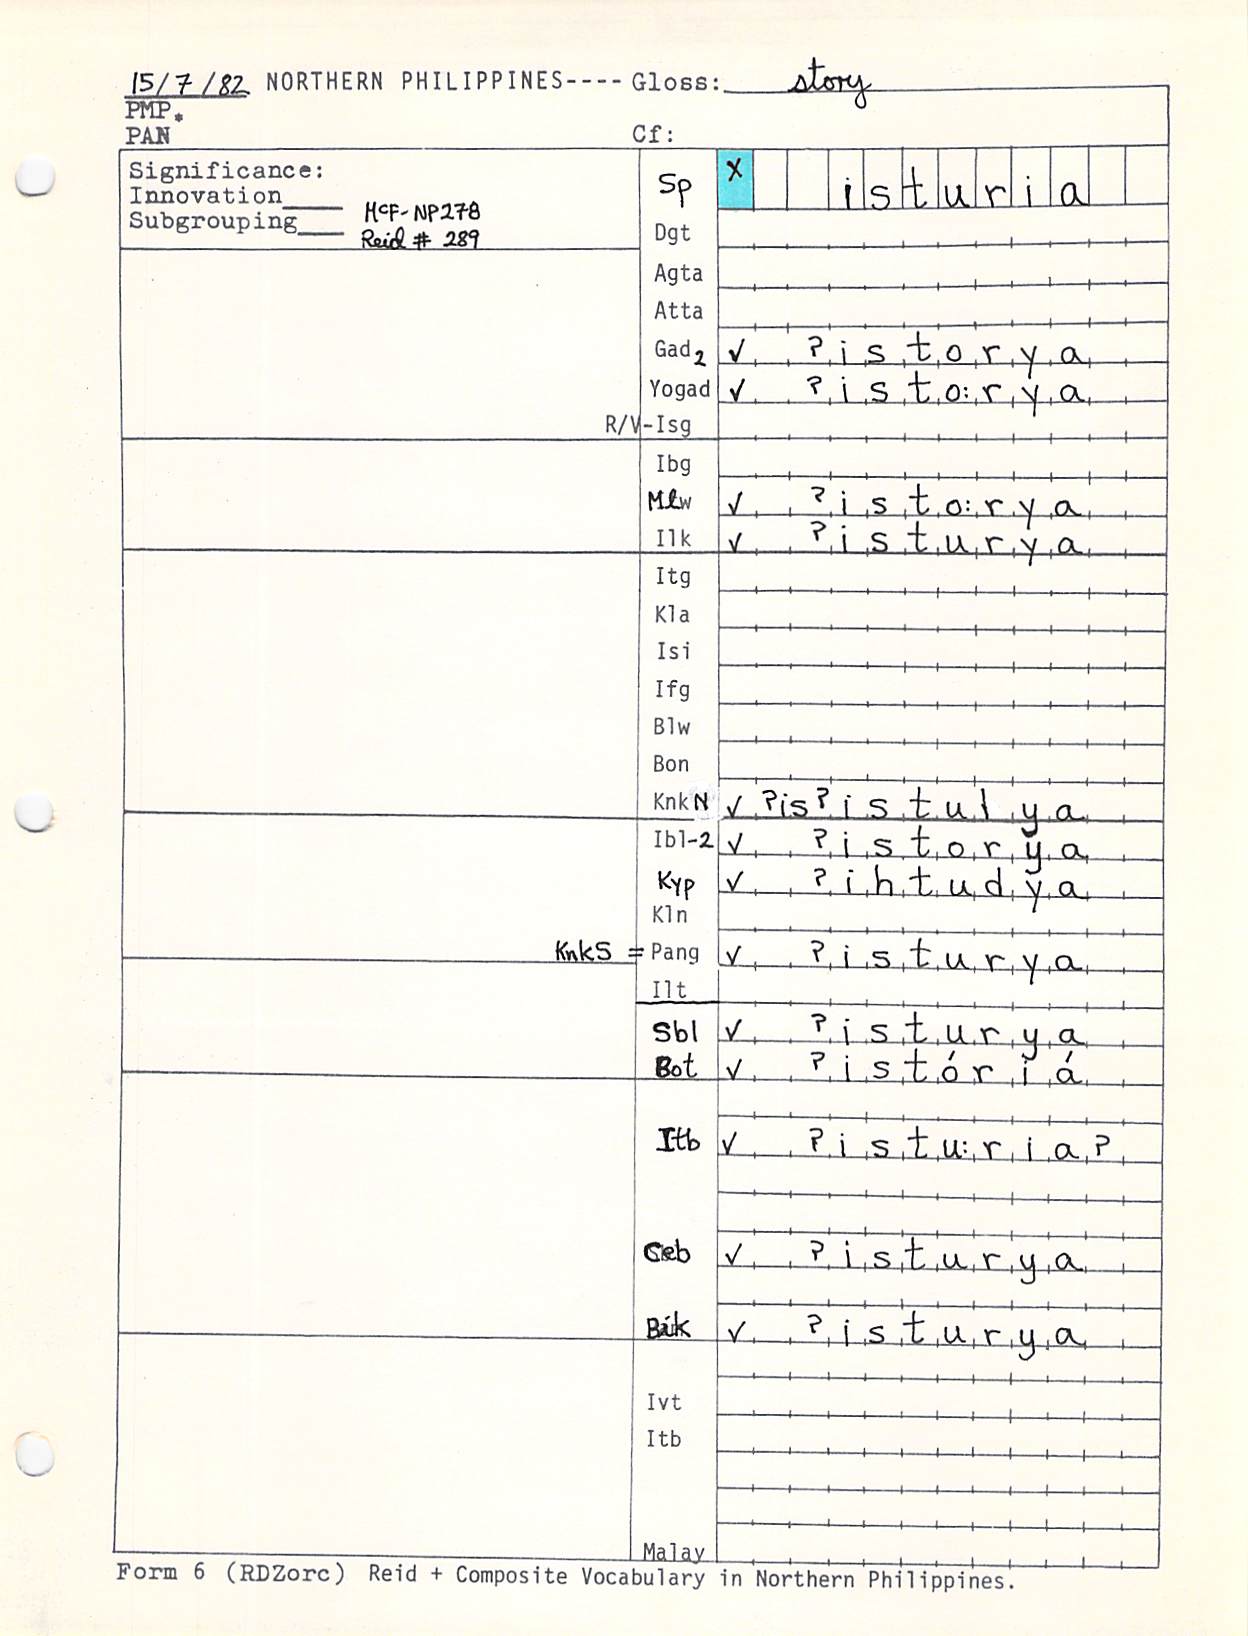 15/7/82 NORTHERN PHILIPPINES---- Gloss: story
PMP.
PAN Cf:
Significance:
Innovation____
Subgrouping___
McF-NP278
Reid # 289
Sp x isturia
Dgt
Agta
Atta
Gad2 ✓ ?istorya
Yogad ✓ ?isto:rya
R/V-Isg
Ibg
Mlw ✓ ?isto:rya
Ilk ✓ ?isturya
Itg
Kla
Isi
Ifg
Blw
Bon
KnkN ✓ ?is?istulya
Ibl-2 ✓ ?istorya
Kyp ✓ ?ihtudya
Kln
KnkS = Pang ✓ ?isturya
Ilt
Sbl ✓ ?isturya
Bot ✓ ?istóriá
Itb ✓ ?istu:ria?
Ceb ✓ ?isturya
Bik ✓ ?isturya
Ivt
Itb
Malay
Form 6 (RDZorc) Reid + Composite Vocabulary in Northern Philippines.